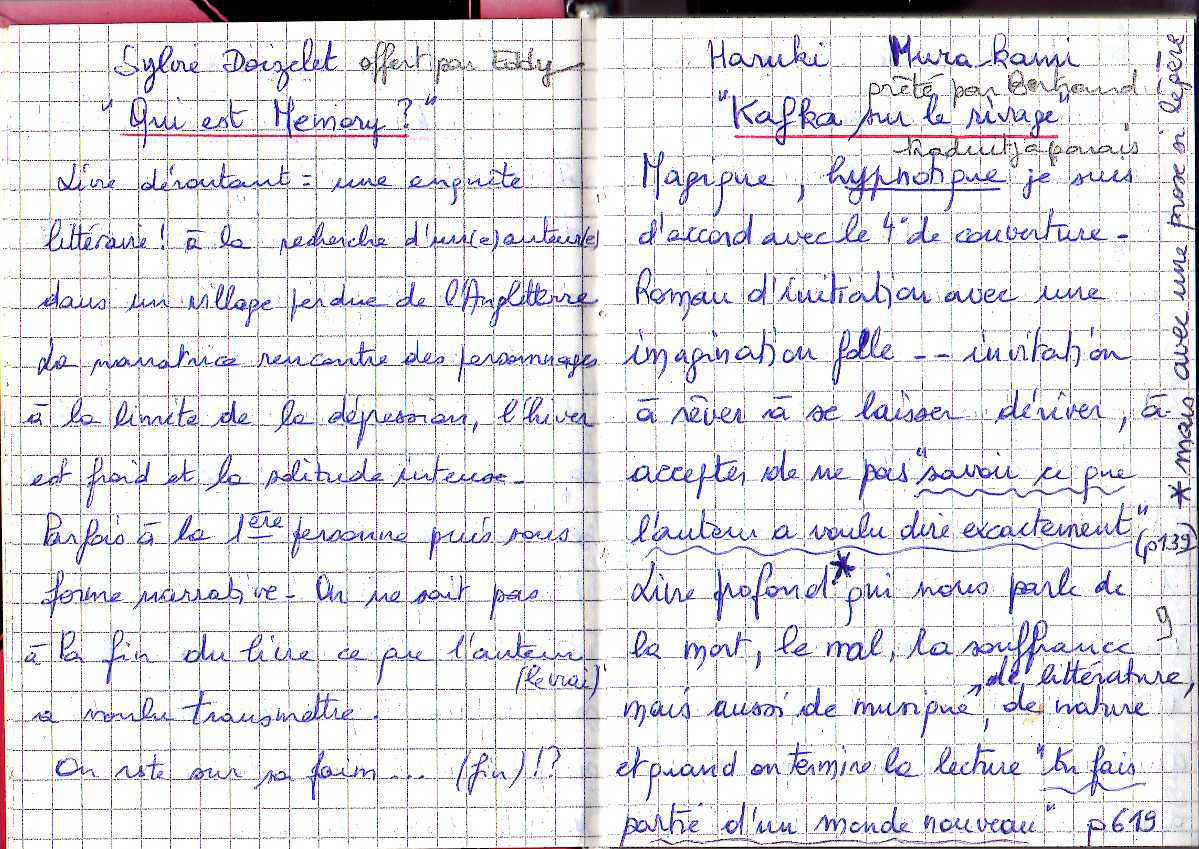 Sylvie Doizelet offert par Eddy
"Qui est Memory ?"
Livre déroutant = une enquête
littéraire ! à la recherche d'un(e) auteur(e)
dans un village perdue de l'Angletterre
La narratrice rencontre des personnages
à la limite de la dépression, l'hiver
est froid et la solitude intense-
Parfois à la 1ère personne puis sous
forme narrative - On ne sait pas
à la fin du livre ce que l'auteur
(le vrai)
a voulu transmettre.
On reste sur sa faim... (fin) !?
Haruki Murakami
prêté par Bertrand
"Kafka sur le rivage"
traduit japonais
Magique, hypnotique je suis
d'accord avec le 4° de couverture -
Roman d'initiation avec une
imagination folle -- invitation
à rêver à se laisser dériver, à
accepter de ne pas "savoir ce que
l'auteur a voulu dire exactement" (p139)
Livre profond* qui nous parle de
la mort, le mal, la souffrance
de littérature,
mais aussi de musique, de nature
et quand on termine la lecture "tu fais
partie d'un monde nouveau" p619
* mais avec une prose si légère !
9